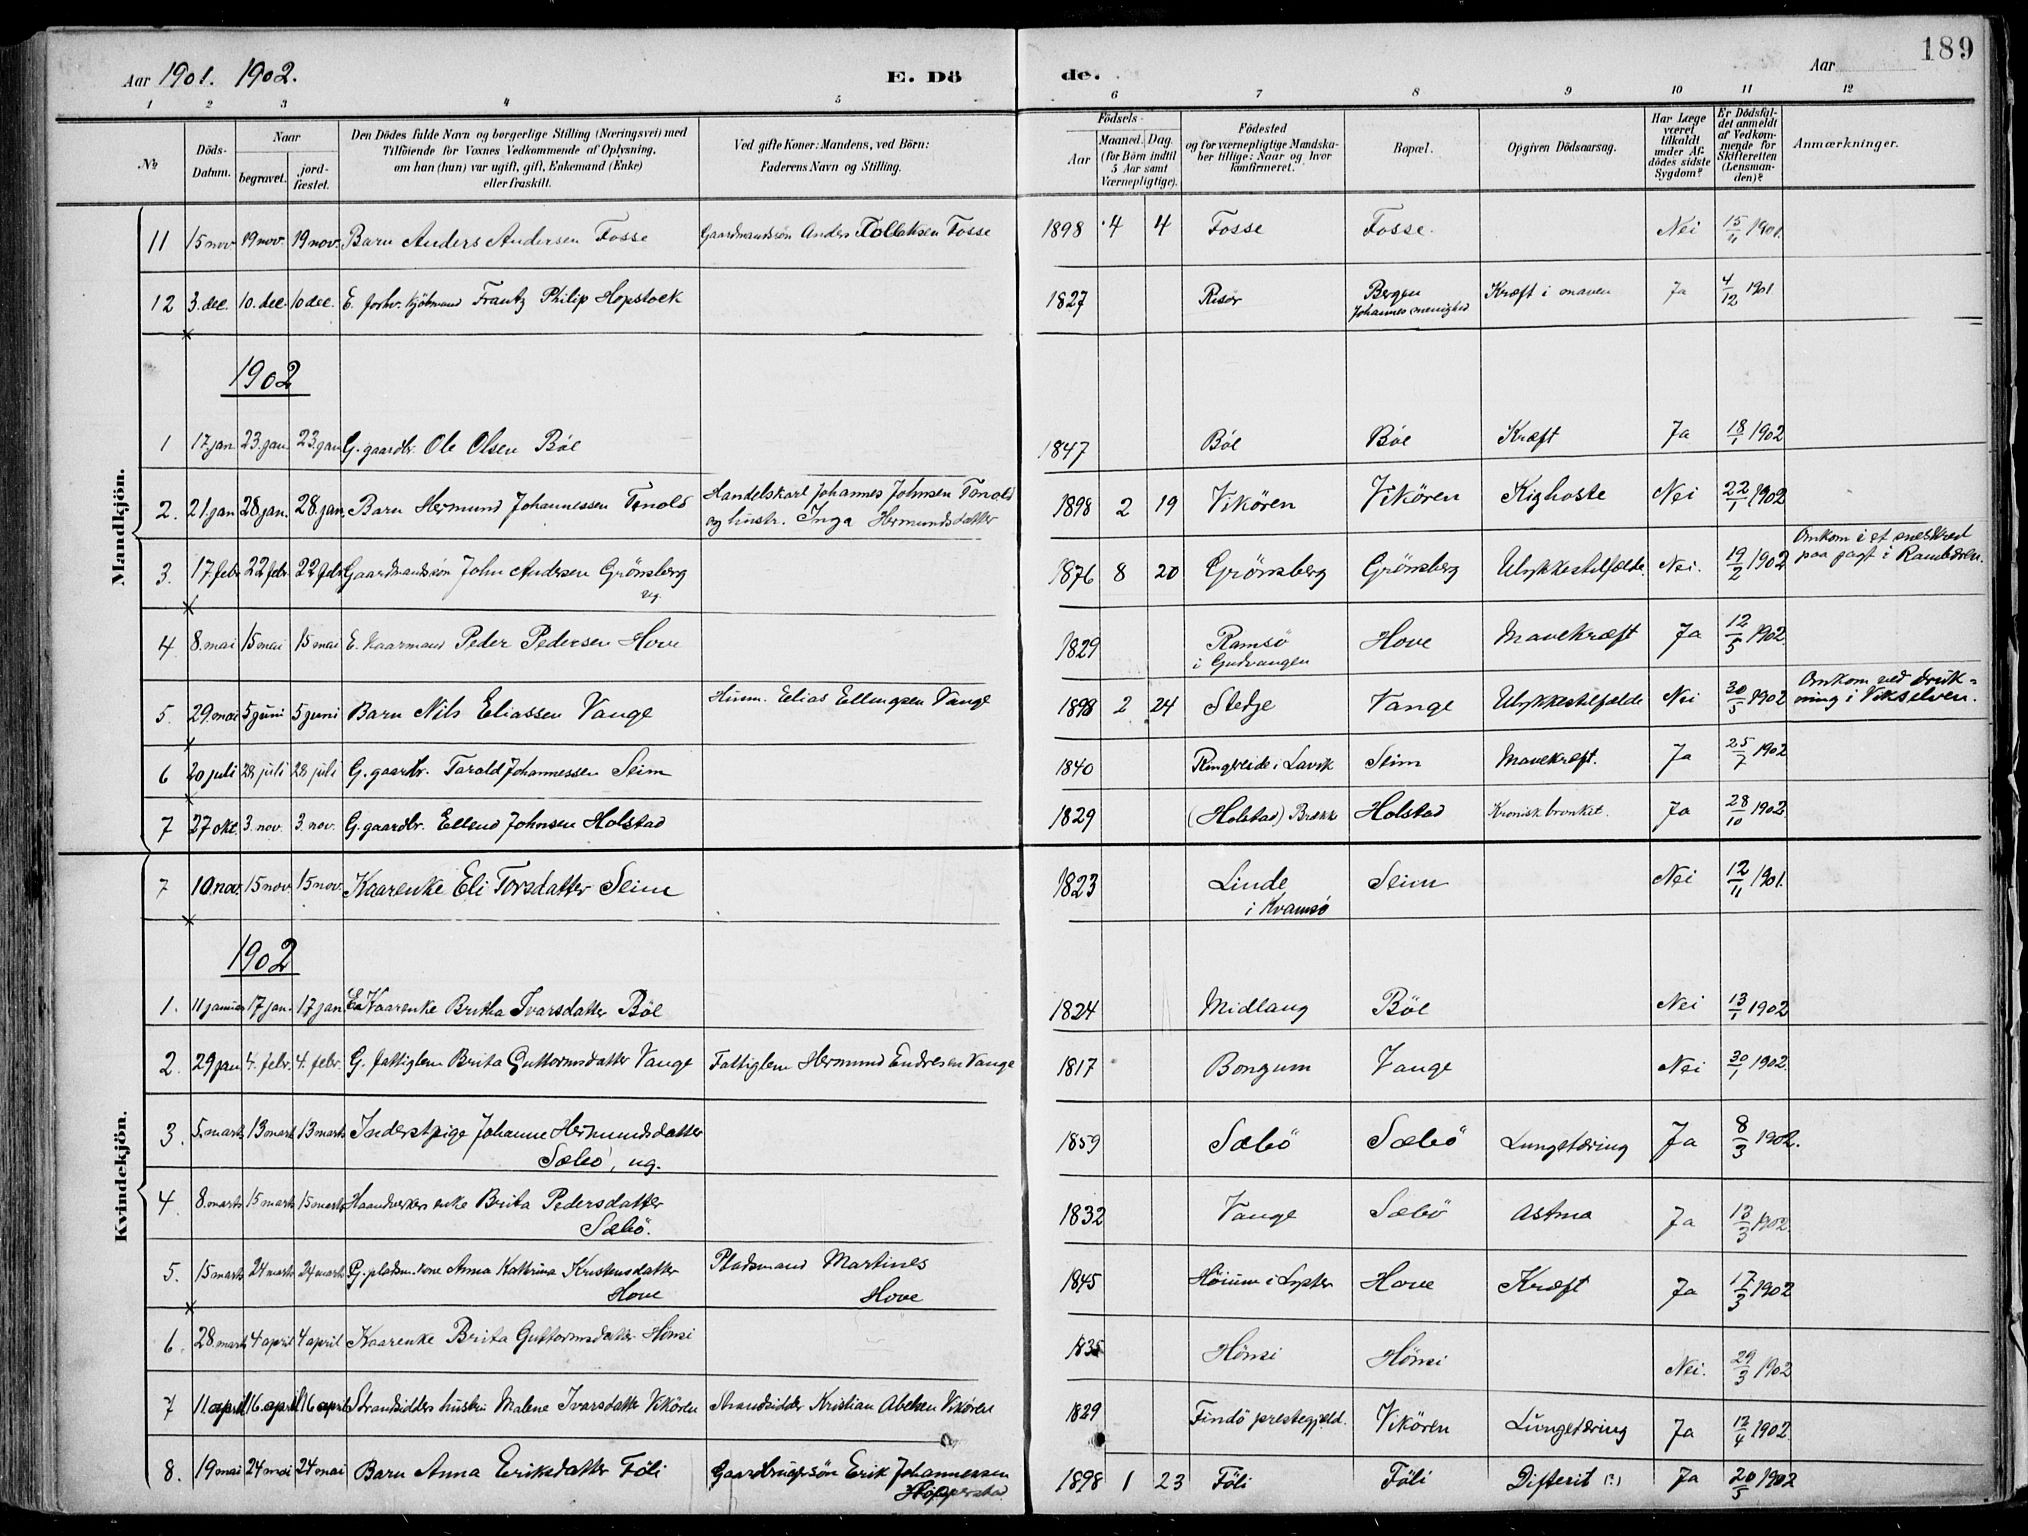 189
Aar 1901. 1902. E. Dö de. Aar
1 2 3 4 5 6 7 8 9 10 11 12
№ Döds-Datum. Naar begravet. jord-fæstet. Den Dödes fulde Navn og borgerlige Stilling (Næringsvei) med Tilföiende for Voxnes Vedkommende af Oplysning, om han (hun) var ugift, gift, Enkemand (Enke) eller fraskilt. Ved gifte Koner: Mandens, ved Börn: Faderens Navn og Stilling. Födsels- Aar Maaned. Dag. (for Börn indtil 5 Aar samt Værnepligtige). Födested og for værnepligtige Mandskaber tillige: Naar og hvor konfirmeret. Bopæl. Opgiven Dödsaarsag. Har Læge været tilkaldt under Afdödes sidste Sygdom? Er Dödsfaldet anmeldt af Vedkommende for Skifteretten (Lensmanden)? Anmærkninger.
Mandkjön.
11 15 nov 19 nov. 19 nov. Barn Anders Andersen Fosse Gaardmandssön Anders Tollaksen Fosse 1898 4 4 Fosse Fosse. Nei 15/11 1901.
12 3. dec. 10. dec. 10 dec. E. forhv. kjöbmand Frantz Philip Hopstock 1827 Risör Bergen Johannes menighed Kræft i maven Ja 4/12 1901
1902
1 17. jan 23. jan. 23. jan G. gaardbr. Ole Olsen Böe 1847 Böe Böe Kræft Ja 18/1 1902
2. 21. jan 28 jan. 28. jan. Barn Hermund Johannessen Tenold Handelskarl Johannes Johnsen Tenold og hustr. Inga Hermundsdatter 1898 2 19 Vikören Vikören Kighoste Nei 22/1 1902
3. 17. febr 22 febr. 22 febr Gaardmandssön John Andersen Grönsberg ug. 1876 8 20 Grönsberg Grönsberg Ulykkestilfælde. Nei. 19/2 1902 Omkom i et sneskred paa jagt i Rambæren.
4 8. mai 15 mai 15 mai E. kaarmand Peder Pedersen Hove 1829 Ramsö i Gudvangen Hove Mavekræft Ja 12/5 1902.
5. 29. mai 5 juni 5 juni Barn Nils Eliassen Vange Husm. Elias Ellingsen Vange 1898 2 24 Stedje Vange Ulykkestilfælde Nei 30/5 1902 Omkom ved drukning i Vikselven.
6 20 juli 28 juli 28 juli G. gaardbr. Tarald Johannessen Seim 1840 Ringereide i Lavik Seim Mavekræft. Ja 25/7 1902
7 27 okt 3. nov. 3. nov. G. gaardbr. Ellend Johnsen Holstad 1829 (Holstad) Brekk Holstad Kronisk bronket. Ja 28/10 1902
Kvindekjön.
7 10 nov. 15 nov. 15 nov. Kaarenke Eli Torsdatter Seim 1823 Linde i Kvamsö Seim Nei 12/11 1901.
1902
1. 11 januar 17 jan. 17 jan. Kaarenke Britha Ivarsdatter Böe 1824 Midlang Böe Nei 13/1 1902
2. 29 jan 4. febr. 4. febr. G. fattiglem Brita Guttormsdatter Vange Fattiglem Hermund Endresen Vange 1817 Bongum Vange Nei 30/1 1902.
3. 5. marts 13 marts 13 marts Inderstpige Johanne Hermundsdatter Sæbö, ug. 1859 Sæbö Sæbö Lungetæring Ja 8/3 1902.
4. 8. marts 15 marts 15 marts Haandverkers enke Brita Pedersdatter Sæbö. 1832 Vange Sæbö Astma Ja 13/3 1902.
5. 15 marts 24 marts 24 marts G. pladsm. kone Anna Kathrina Kristensdatter Hove Pladsmand Martines Hove 1845 Höium i Lyster Hove Kræft Ja 17/3 1902
6. 28 marts 4 april 4 april Kaarenke Brita Guttormsdatter Hönsi 1835 Hönsi Hönsi Nei. 29/3 1902
7 11. april 16. april 16 april Strandsidders hustru Malene Ivarsdatter Vikören Strandsidder Kristian Abelsen Vikören 1829 Findö prestegjeld. Vikören Lungetæring Ja 12/4 1902
8. 19 mai 24 mai 24 mai Barn Anna Eriksdatter Föli Gaardbrugersön Erik Johannessen Hopperstad 1898 1 23 Föli Föli Difterit (?) Ja 20/5 1902